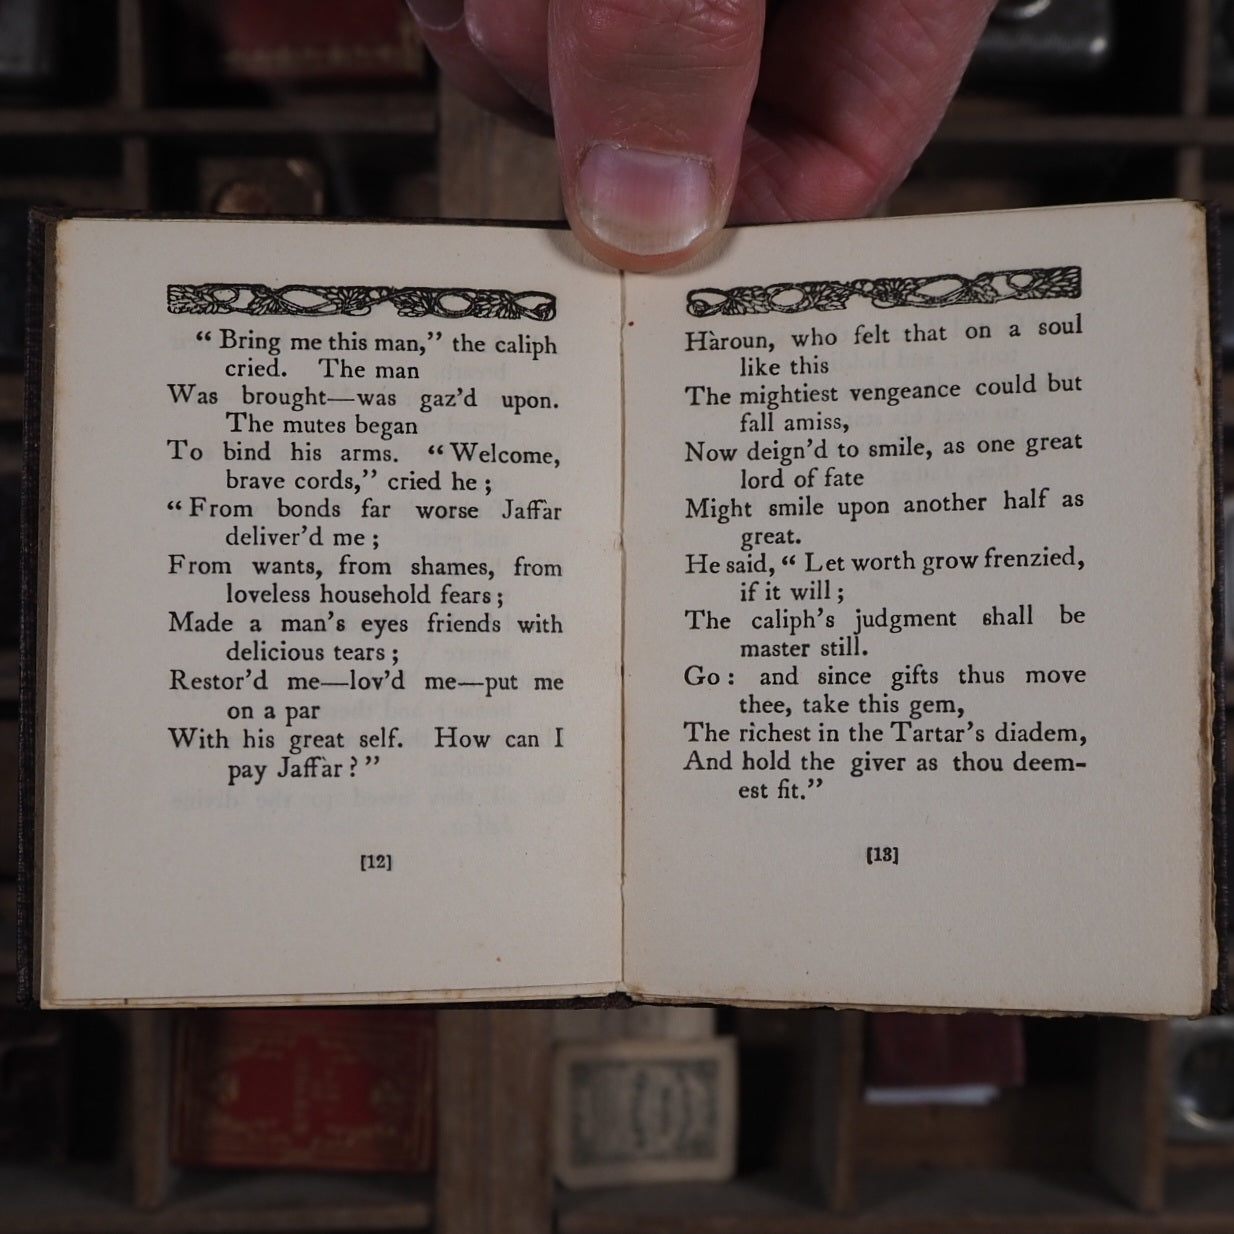 “ Bring me this man,” the caliph
cried. The man
Was brought—was gaz’d upon.
The mutes began
To bind his arms. “ Welcome,
brave cords,” cried he ;
“ From bonds far worse Jaffàr
deliver’d me ;
From wants, from shames, from
loveless household fears ;
Made a man’s eyes friends with
delicious tears ;
Restor’d me—lov’d me—put me
on a par
With his great self. How can I
pay Jaffàr ? ”
[12]
Hàroun, who felt that on a soul
like this
The mightiest vengeance could but
fall amiss,
Now deign’d to smile, as one great
lord of fate
Might smile upon another half as
great.
He said, “ Let worth grow frenzied,
if it will ;
The caliph’s judgment shall be
master still.
Go : and since gifts thus move
thee, take this gem,
The richest in the Tartar’s diadem,
And hold the giver as thou deem-
est fit.”
[13]